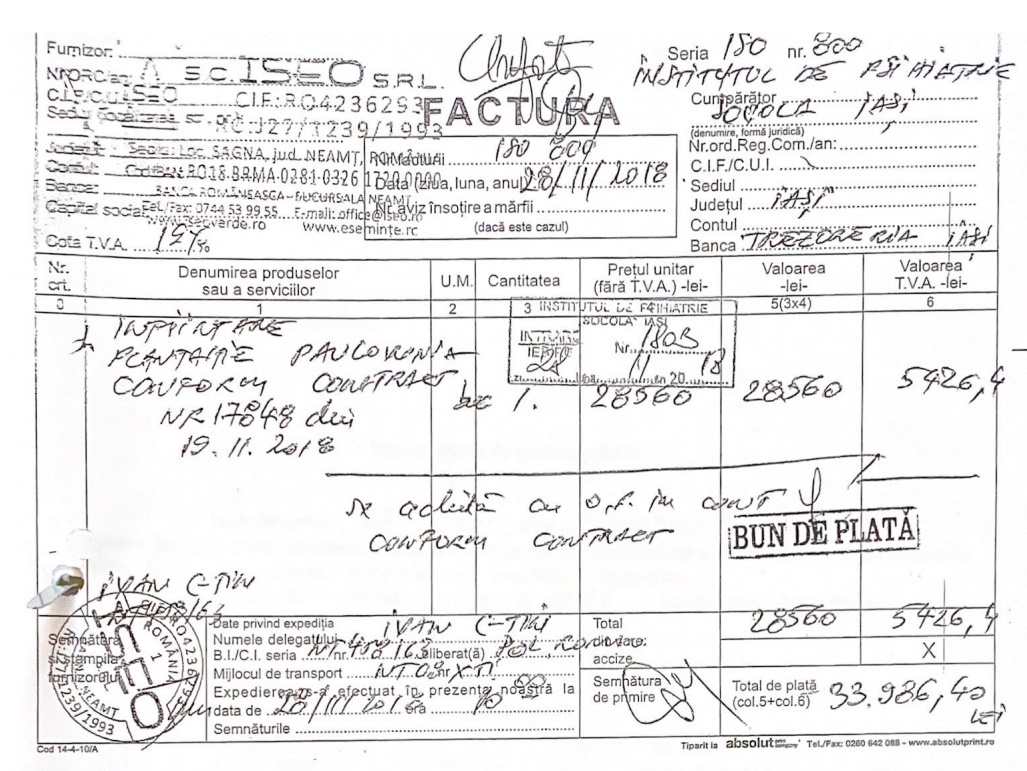 Furnizor:
Seria 180 nr. 800
INSTITUTUL DE PSIHIATRIE
S.C. ISEO S.R.L.
C.I.F.: RO4236293
Cumpărător SOCOLA IAȘI
FACTURA
RC: J27/1239/1993
(denumire, formă juridică)
Nr.ord.Reg.Com./an:
Sediu: Loc. SAGNA, jud. NEAMȚ, ROMÂNIA
Nr. facturii 180 800
C.I.F./C.U.I.
Cod IBAN RO18 BRMA 0281 0326 1720 0000
Data (ziua, luna, anul) 28/11/2018
Sediul
BANCA ROMÂNEASCA - SUCURSALA NEAMȚ
Județul IAȘI
Capital social
Tel./Fax: 0744 53 99 55 E-mail: office@iseo.ro
Nr. aviz însoțire a mărfii
www.iseoverde.ro www.eseminte.ro
(dacă este cazul)
Contul
Cota T.V.A. 19%
Banca TREZORERIA IAȘI
Nr. crt.
Denumirea produselor sau a serviciilor
U.M.
Cantitatea
Prețul unitar (fără T.V.A.) -lei-
Valoarea -lei-
Valoarea T.V.A. -lei-
0 1 2 3 5(3x4) 6
INSTITUTUL DE PSIHIATRIE
SOCOLA IAȘI
INTRARE
IEȘIRE
Nr.
28 11 18
20
1 INFIINTARE
PLANTATIE PAULOWNIA
CONFORM CONTRACT buc 1. 28560 28560 5426,4
NR 17848 din
19.11.2018
se achită cu o.p. in cont
CONFORM CONTRACT
BUN DE PLATĂ
IVAN C-TIN
Semnătura și ștampila furnizorului
ROMÂNIA
ISEO
NEAMȚ
Date privind expediția
Numele delegatului IVAN C-TIN
B.I./C.I. seria NT nr. eliberat(ă) POL.
Mijlocul de transport NT 08 nr.
Expedierea s-a efectuat în prezența noastră la
data de 28/11/2018 ora 10 00
Semnăturile
Total
din care:
accize
28560 5426,4
X
Semnătura de primire
Total de plată (col.5+col.6) 33.986,40
LEI
Cod 14-4-10/A
Tiparit la absolut print company Tel./Fax: 0260 642 088 - www.absolutprint.ro